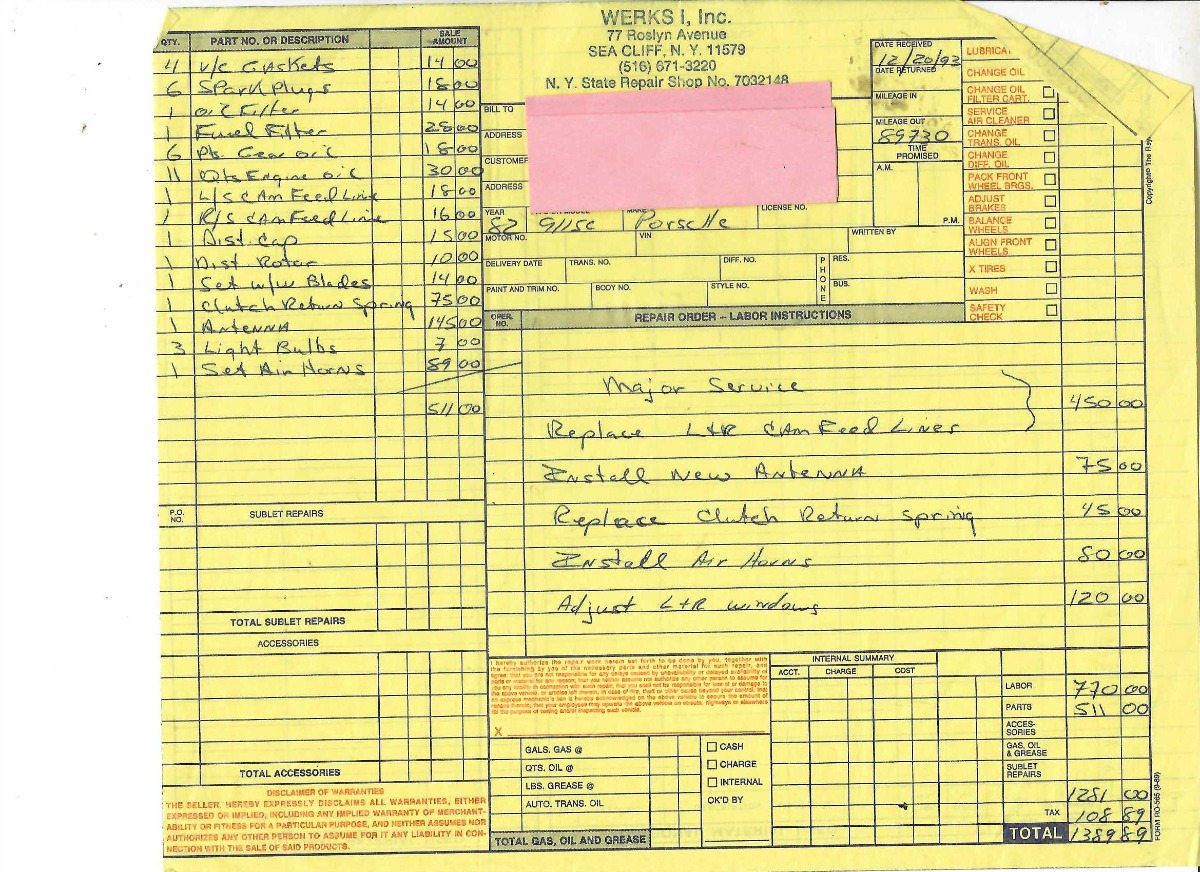 WERKS I, Inc.
77 Roslyn Avenue
SEA CLIFF, N. Y. 11579
(516) 671-3220
N. Y. State Repair Shop No. 7032148
QTY. PART NO. OR DESCRIPTION SALE AMOUNT
4 V/C GASKets 14 00
6 SPark Plugs 18 00
1 oil Filter 14 00
1 Fuel Filter 28 00
6 Pts. Gear oil 18 00
11 Qts Engine oil 30 00
1 L/S CAM Feed Line 18 00
1 R/S CAM Feed Line 16 00
1 Dist. Cap 15 00
1 Dist. Rotor 10 00
1 Set w/w Blades 14 00
1 Clutch Return Spring 75 00
1 ANTENNA 145 00
3 Light Bulbs 7 00
1 Set Air Horns 89 00
511 00
P.O. NO. SUBLET REPAIRS
TOTAL SUBLET REPAIRS
ACCESSORIES
TOTAL ACCESSORIES
DISCLAIMER OF WARRANTIES
THE SELLER, HEREBY EXPRESSLY DISCLAIMS ALL WARRANTIES, EITHER
EXPRESSED OR IMPLIED, INCLUDING ANY IMPLIED WARRANTY OF MERCHANT-
ABILITY OR FITNESS FOR A PARTICULAR PURPOSE, AND NEITHER ASSUMES NOR
AUTHORIZES ANY OTHER PERSON TO ASSUME FOR IT ANY LIABILITY IN CON-
NECTION WITH THE SALE OF SAID PRODUCTS.
BILL TO
ADDRESS
CUSTOMER
ADDRESS
DATE RECEIVED
12/20/93
DATE RETURNED
MILEAGE IN
MILEAGE OUT
89730
TIME PROMISED
A.M.
P.M.
YEAR MAKE LICENSE NO.
82 911SC Porsche
MOTOR NO. VIN WRITTEN BY
DELIVERY DATE TRANS. NO. DIFF. NO. PHONE RES.
PAINT AND TRIM NO. BODY NO. STYLE NO. BUS.
LUBRICAT
CHANGE OIL
CHANGE OIL FILTER CART.
SERVICE AIR CLEANER
CHANGE TRANS. OIL
CHANGE DIFF. OIL
PACK FRONT WHEEL BRGS.
ADJUST BRAKES
BALANCE WHEELS
ALIGN FRONT WHEELS
X TIRES
WASH
SAFETY CHECK
OPER. NO. REPAIR ORDER – LABOR INSTRUCTIONS
Major Service
450 00
Replace L+R CAM Feed Lines
Install New ANTENNA 75 00
Replace Clutch Return Spring 45 00
Install Air Horns 80 00
Adjust L+R windows 120 00
X
GALS. GAS @
QTS. OIL @
LBS. GREASE @
AUTO. TRANS. OIL
TOTAL GAS, OIL AND GREASE
CASH
CHARGE
INTERNAL
OK'D BY
INTERNAL SUMMARY
ACCT. CHARGE COST
LABOR 770 00
PARTS 511 00
ACCES- SORIES
GAS, OIL & GREASE
SUBLET REPAIRS
1281 00
TAX 108 89
TOTAL 1389 89
FORM RO-565 (9-89)